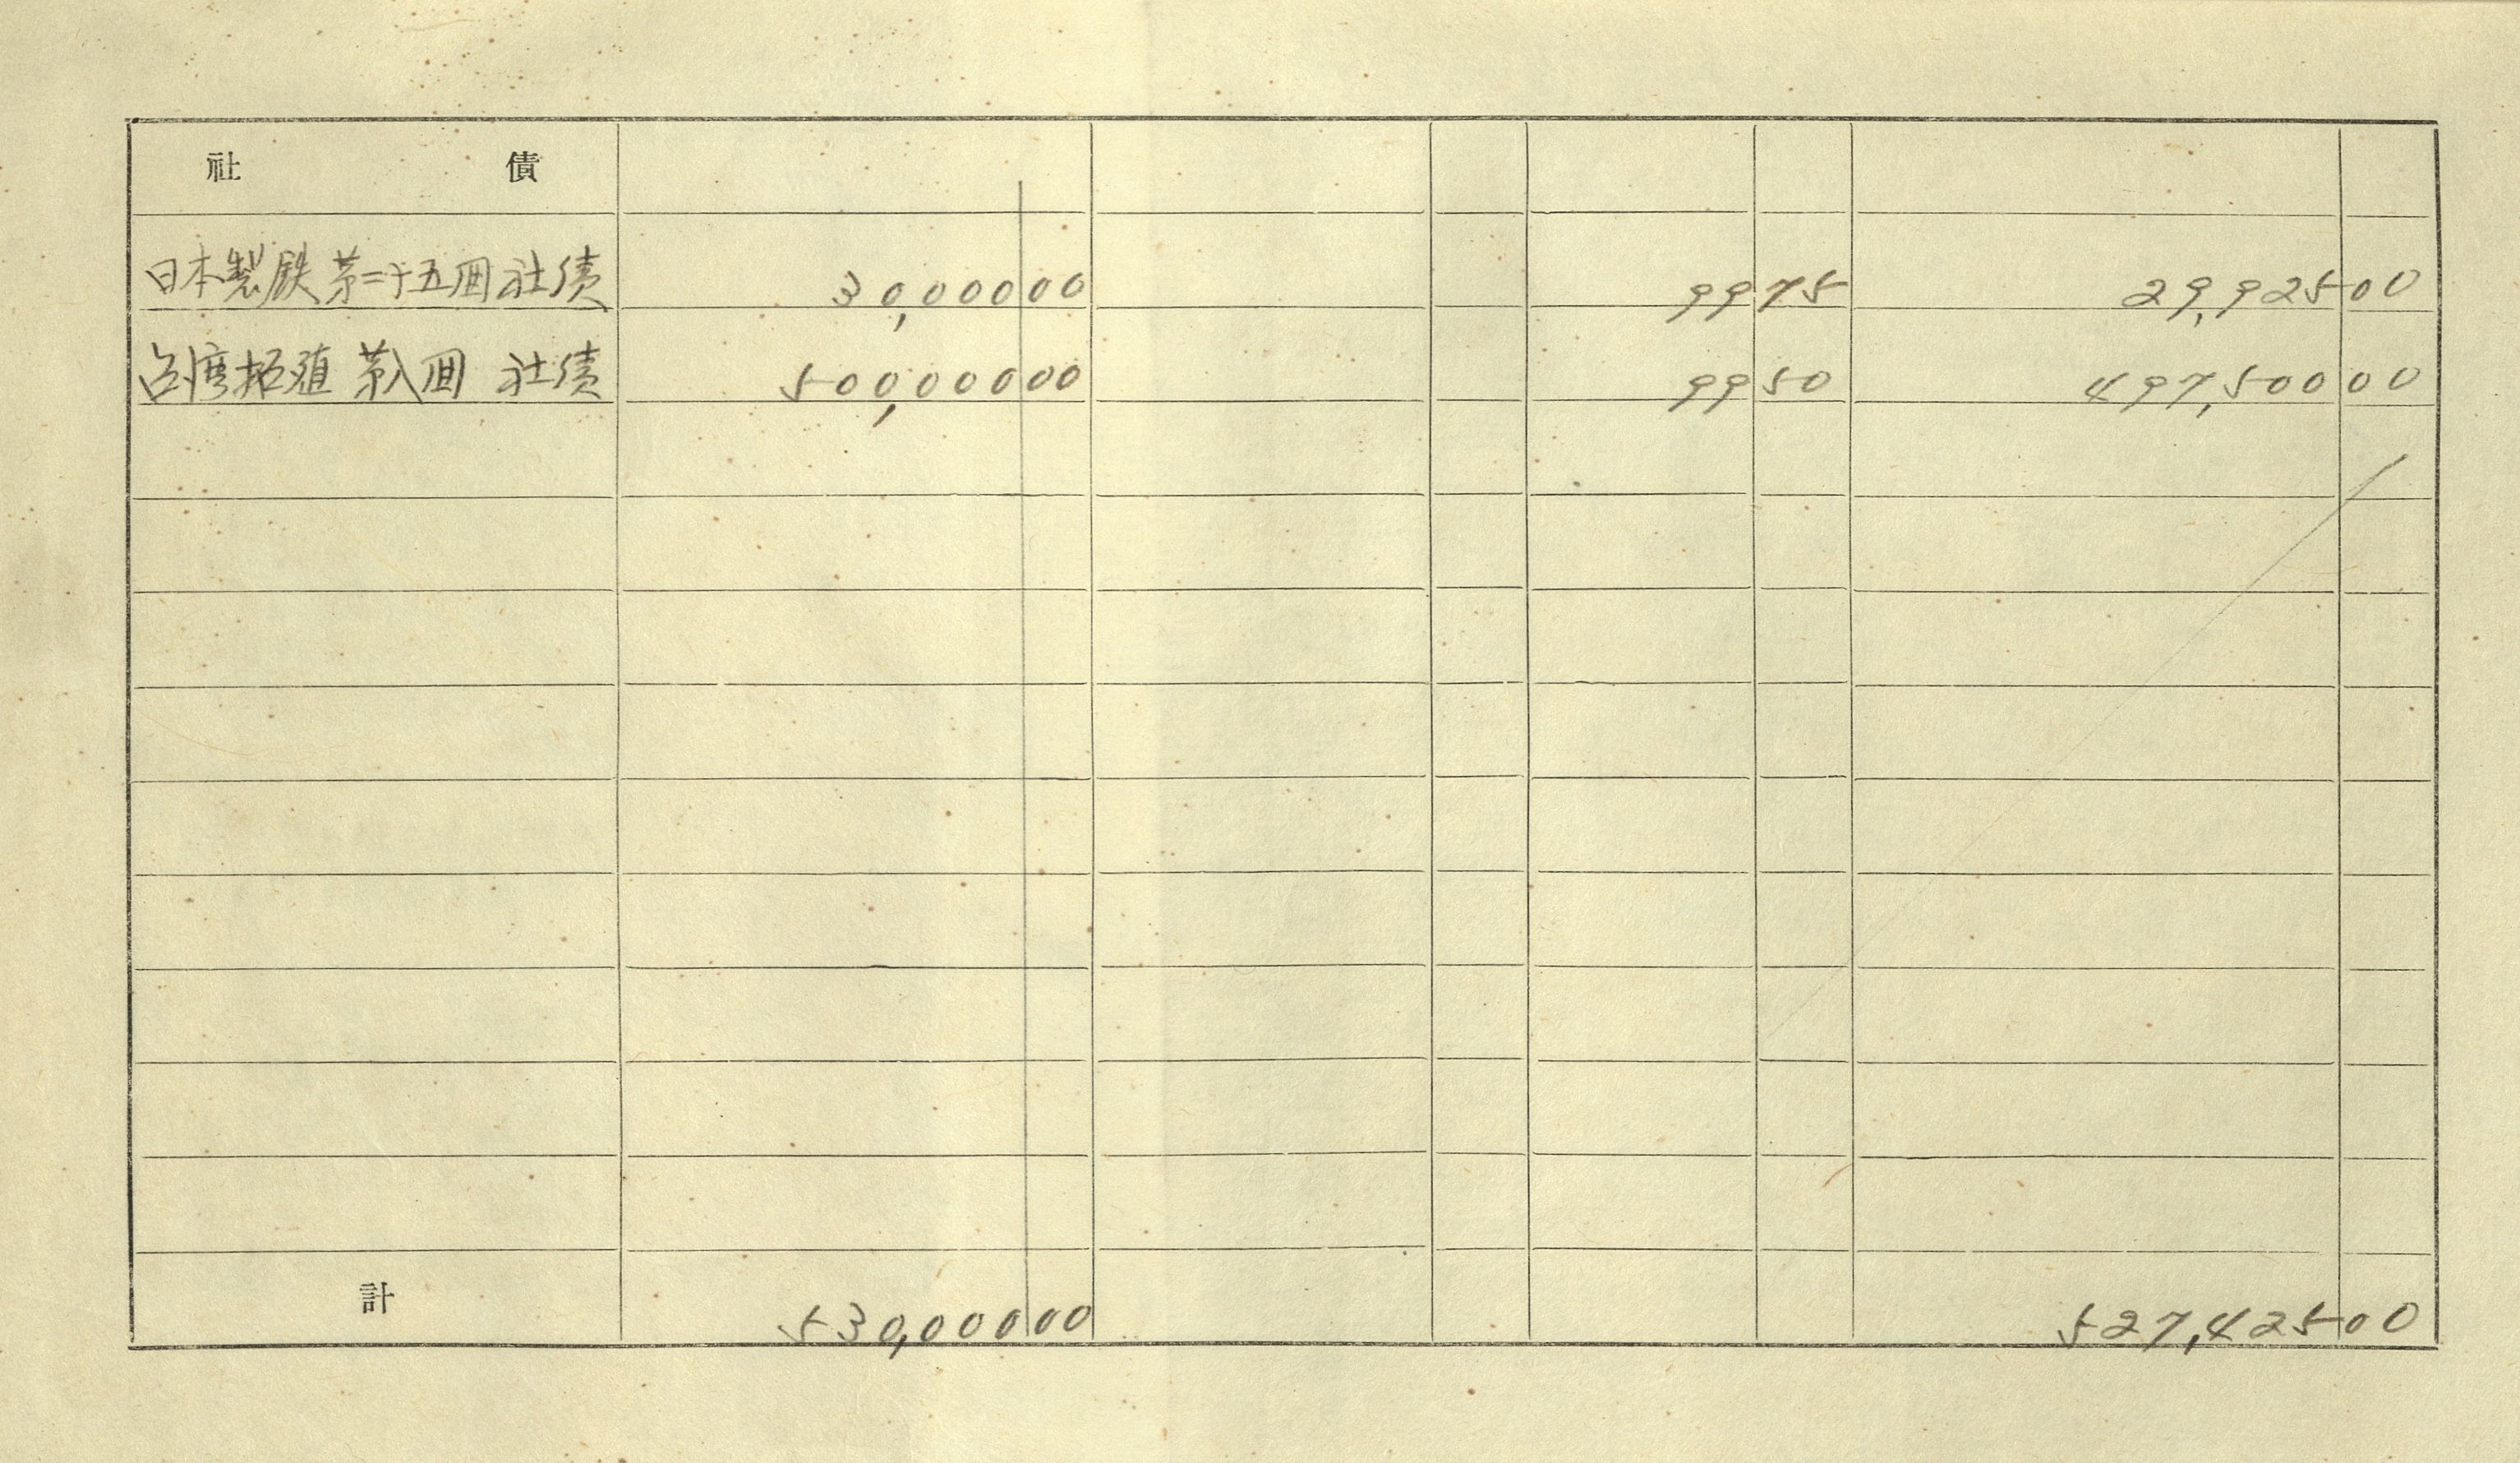 社債
日本製鉄第二十五回社債 30,000 00 99 75 29,925 00
台湾拓殖 第八回 社債 500,000 00 99 50 497,500 00
計 530,000 00 527,425 00